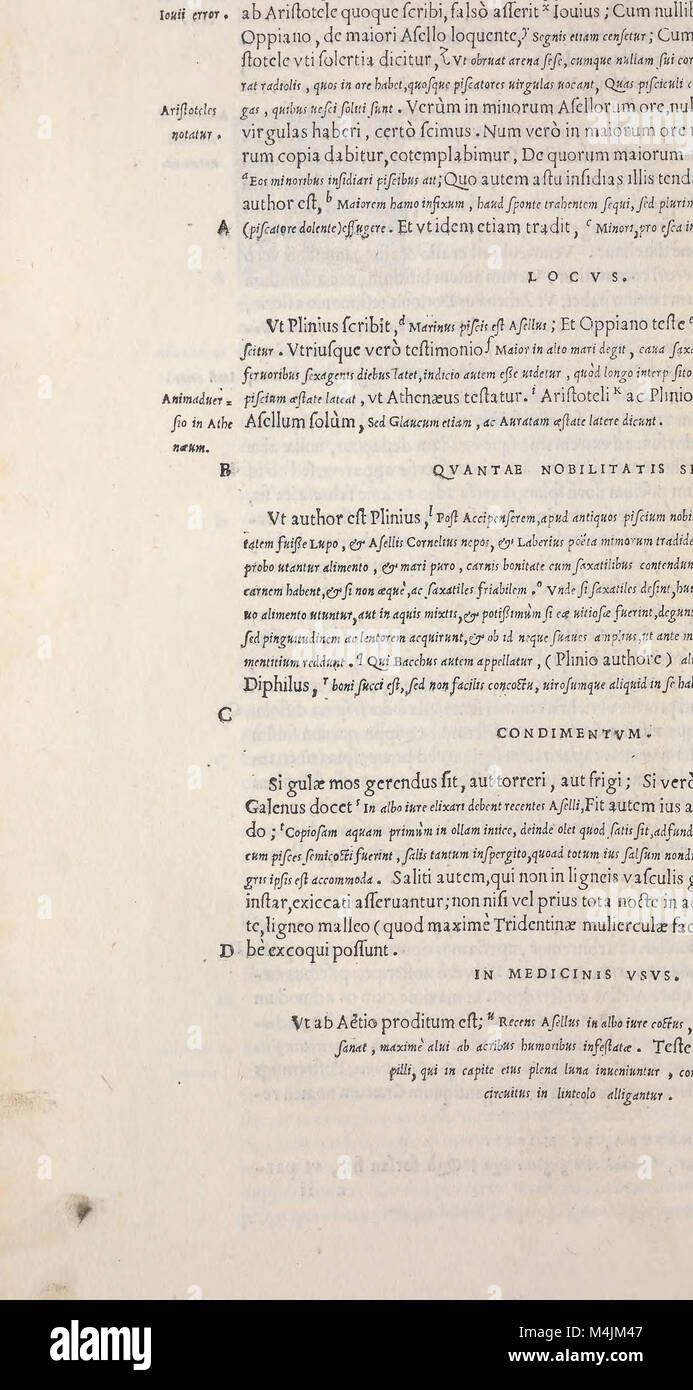 Iouii error. ab Aristotele quoque scribi, falsò asserit x Iouius; Cum nullib
Oppiano, de maiori Asello loquente, y Segnis etiam censetur; Cum
stotele vti solertia dicitur, z Vt obruat arena sese, cumque nullam sui cor
rat radiolis, quos in ore habet, quosque piscatores uirgulas uocant, Quas pisciculi c
Aristoteles gas, quibus uesci soliti sunt. Verùm in minorum Asellorum ore, nul
notatur. virgulas haberi, certò scimus. Num verò in maiorum ore
rum copia dabitur, cõtemplabimur, De quorum maiorum
a Eos minoribus insidiari piscibus ait; Quo autem astu insidias illis tend
author est, b Maiorem hamo infixum, haud sponte trahentem sequi, sed plurim
A (piscatore dolente) effugere. Et vt idem etiam tradit, c Minori, pro esca in
LOCVS.
Vt Plinius scribit, d Marinus piscis est Asellus; Et Oppiano teste e
scitur. Vtriusque verò testimonio f Maior in alto mari degit, caua saxa
feruoribus sexagenis diebus latet, indicio autem esse uidetur, quòd longo interpsito
Animaduer= piscium æstate lateat, vt Athenæus testatur. i Aristoteli k ac Plinio
sio in Athe Asellum solùm, Sed Glaucum etiam, ac Auratam æstate latere dicunt.
næum.
B QVANTAE NOBILITATIS SI
Vt author est Plinius, l Post Accipenserem, apud antiquos piscium nobi
tatem fuisse Lupo, & Asellis Cornelius nepos, & Laberius poëta mimorum tradide
probo utantur alimento, & mari puro, carnis bonitate cum saxatilibus contendun
carnem habent, & si non æquè, ac saxatiles friabilem. o Vnde si saxatiles desint, hui
uo alimento utuntur, aut in aquis mixtis, & potißimùm si eæ uitiosæ fuerint, degunt
sed pinguitudinem ac lentorem acquirunt, & ob id neque suaues amplius, ut ante
mentitium reddunt. q Qui Bacchus autem appellatur, (Plinio authore) ali
Diphilus, r boni succi est, sed non facilis concoctu, uirosumque aliquid in se hab
C
CONDIMENTVM.
Si gulæ mos gerendus sit, aut torreri, aut frigi; Si verò
Galenus docet s In albo iure elixari debent recentes Aselli, Fit autem ius a
do; t Copiosam aquam primùm in ollam iniice, deinde olei quod satis sit, adfund
cum pisces semicocti fuerint, salis tantum inspergito, quoad totum ius salsum nondũ
gris ipsis est accommoda. Saliti autem, qui non in ligneis vasculis
instar, exiccati asseruantur; non nisi vel prius tota nocte in a
te, ligneo malleo (quod maximè Tridentinæ mulierculæ fac
D bè excoqui possunt.
IN MEDICINIS VSVS.
Vt ab Aëtio proditum est; u Recens Asellus in albo iure coctus,
sanat, maximè alui ab acribus humoribus infestatæ. Teste
pilli, qui in capite eius plena luna inueniuntur, con
circuitus in linteolo alligantur.
alamy
Image ID: M4JM47
www.alamy.com